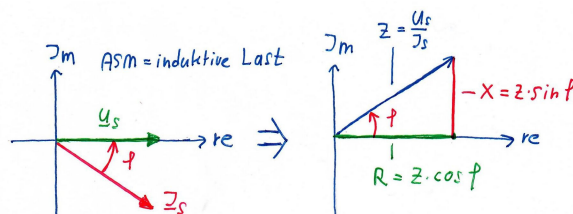 Im ASM = induktive Last
U_s
re
φ
I_s
⇒
Im
Z = U_s/I_s
φ
X = Z·sin φ
re
R = Z·cos φ